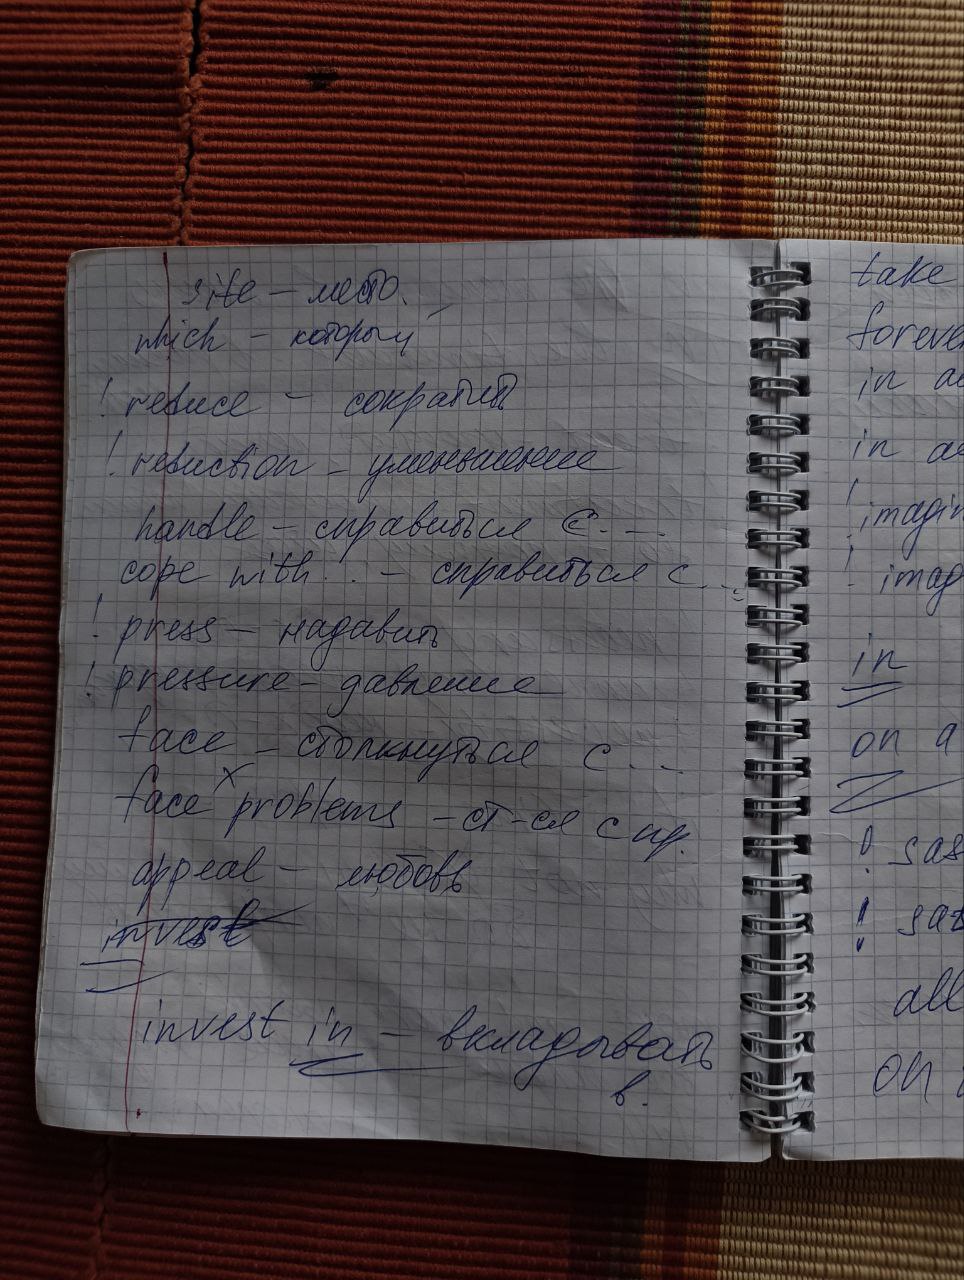 site – место.
which – который
! reduce – сократить
! reduction – уменьшение
handle – справиться с...
cope with... – справиться с...
! press – надавить
! pressure – давление
face – столкнуться с...
face x problems – ст-ся с пр.
appeal – любовь
invest
invest in – вкладывать
в.
take
forever
in
in
! imagin
! imag
in
on a
!
!
all
on